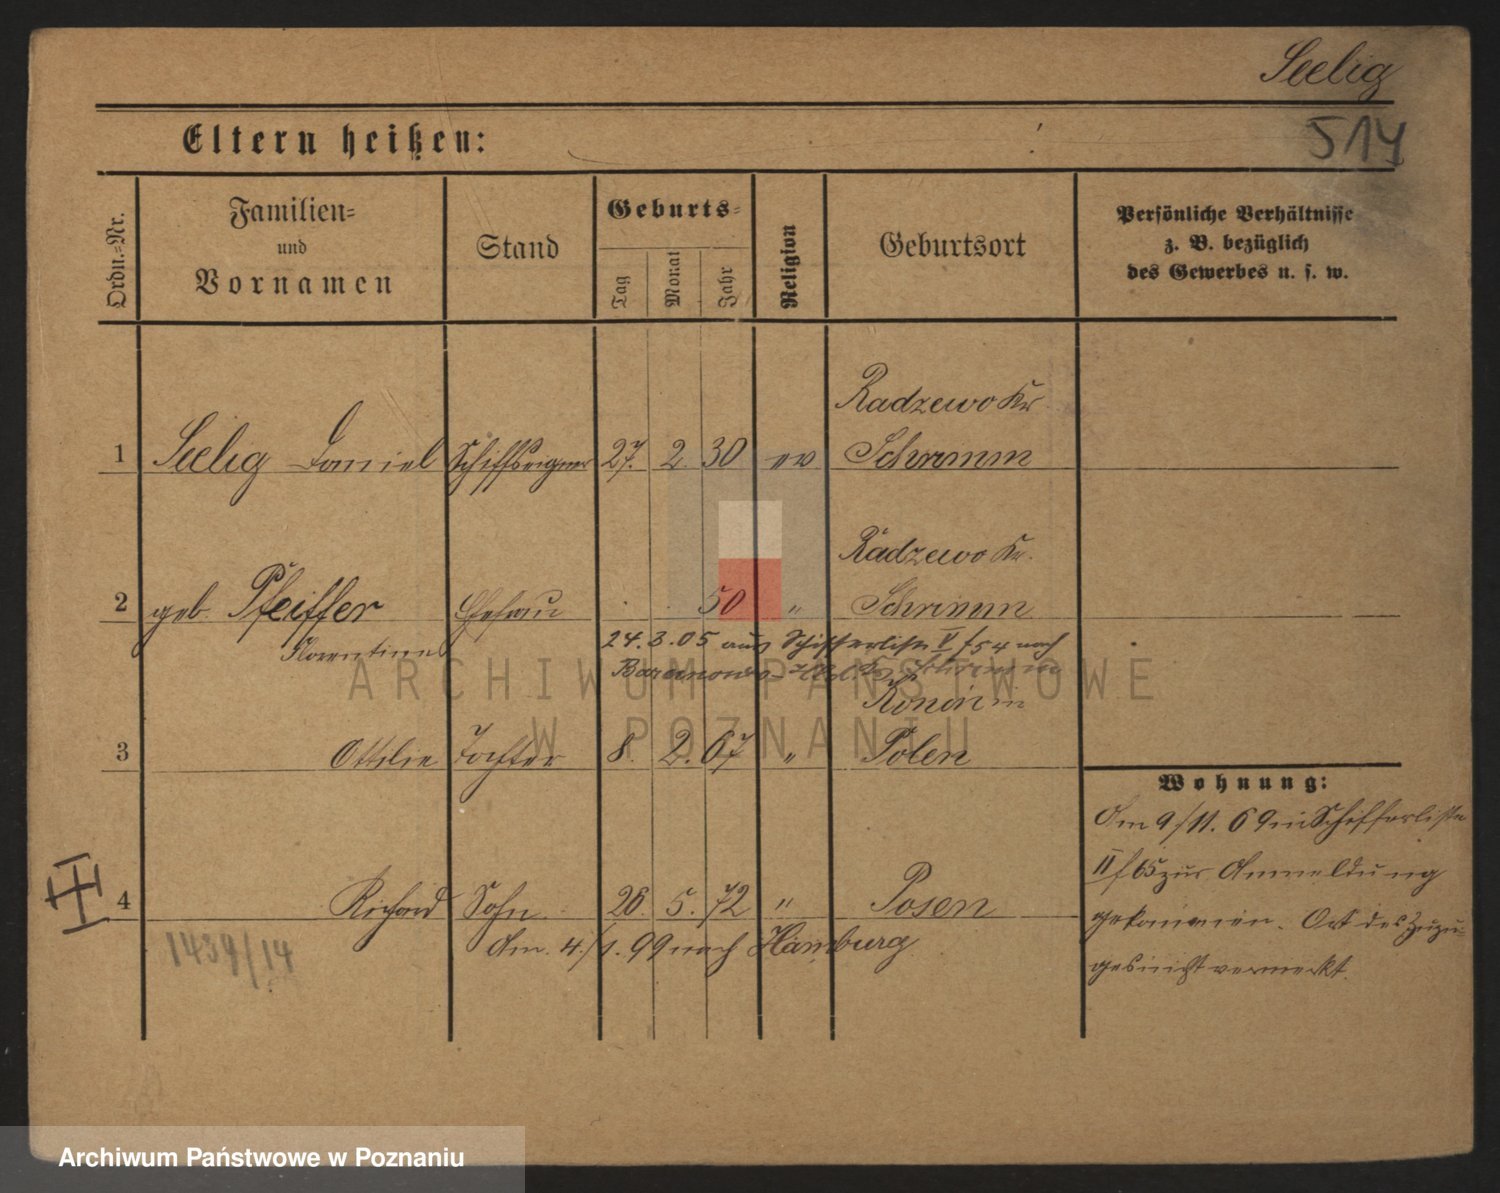 Seelig
514
Eltern heißen:
Ordn.-Nr.
Familien-
und
Vornamen
Stand
Geburts-
Tag
Monat
Jahr
Religion
Geburtsort
Persönliche Verhältnisse
z. B. bezüglich
des Gewerbes u. s. w.
Radzewo Kr
1 Seelig Daniel Schiffseigner 27. 2. 30 ev Schrimm
Radzewo Kr.
2 geb. Pfeiffer Ehefrau 50 " Schrimm
Florentine
24. 3. 05 aus Schifferliste V f 54 nach
Baranowo
Konin in
3 Ottilie Tochter 8. 2. 67 " Polen
4 Richard Sohn 26. 5. 72 " Posen
Am 4./1. 99 nach Hamburg
1439/14
Wohnung:
Am 9/11. 69 in Schifferliste
II f 65 zur Anmeldung
gekommen. Ort des Zuzu-
ges nicht vermerkt.
ARCHIWUM PAŃSTWOWE
W POZNANIU
Archiwum Państwowe w Poznaniu